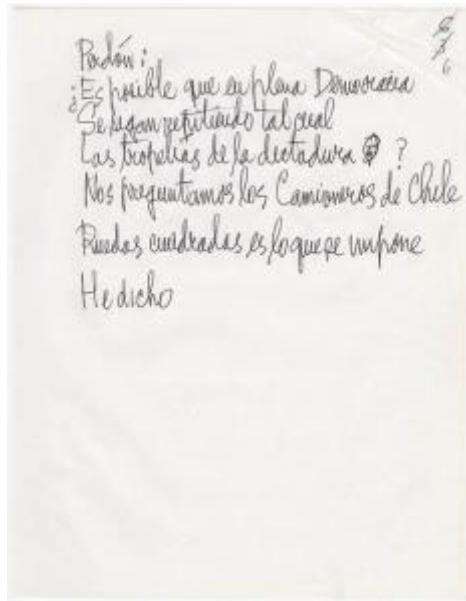 Perdón:
¿Es posible que en plena Democracia
Se sigan repitiendo tal cual
Las tropelías de la dictadura ?
Nos preguntamos los Camioneros de Chile
Ruedas cuadradas es lo que se impone
He dicho